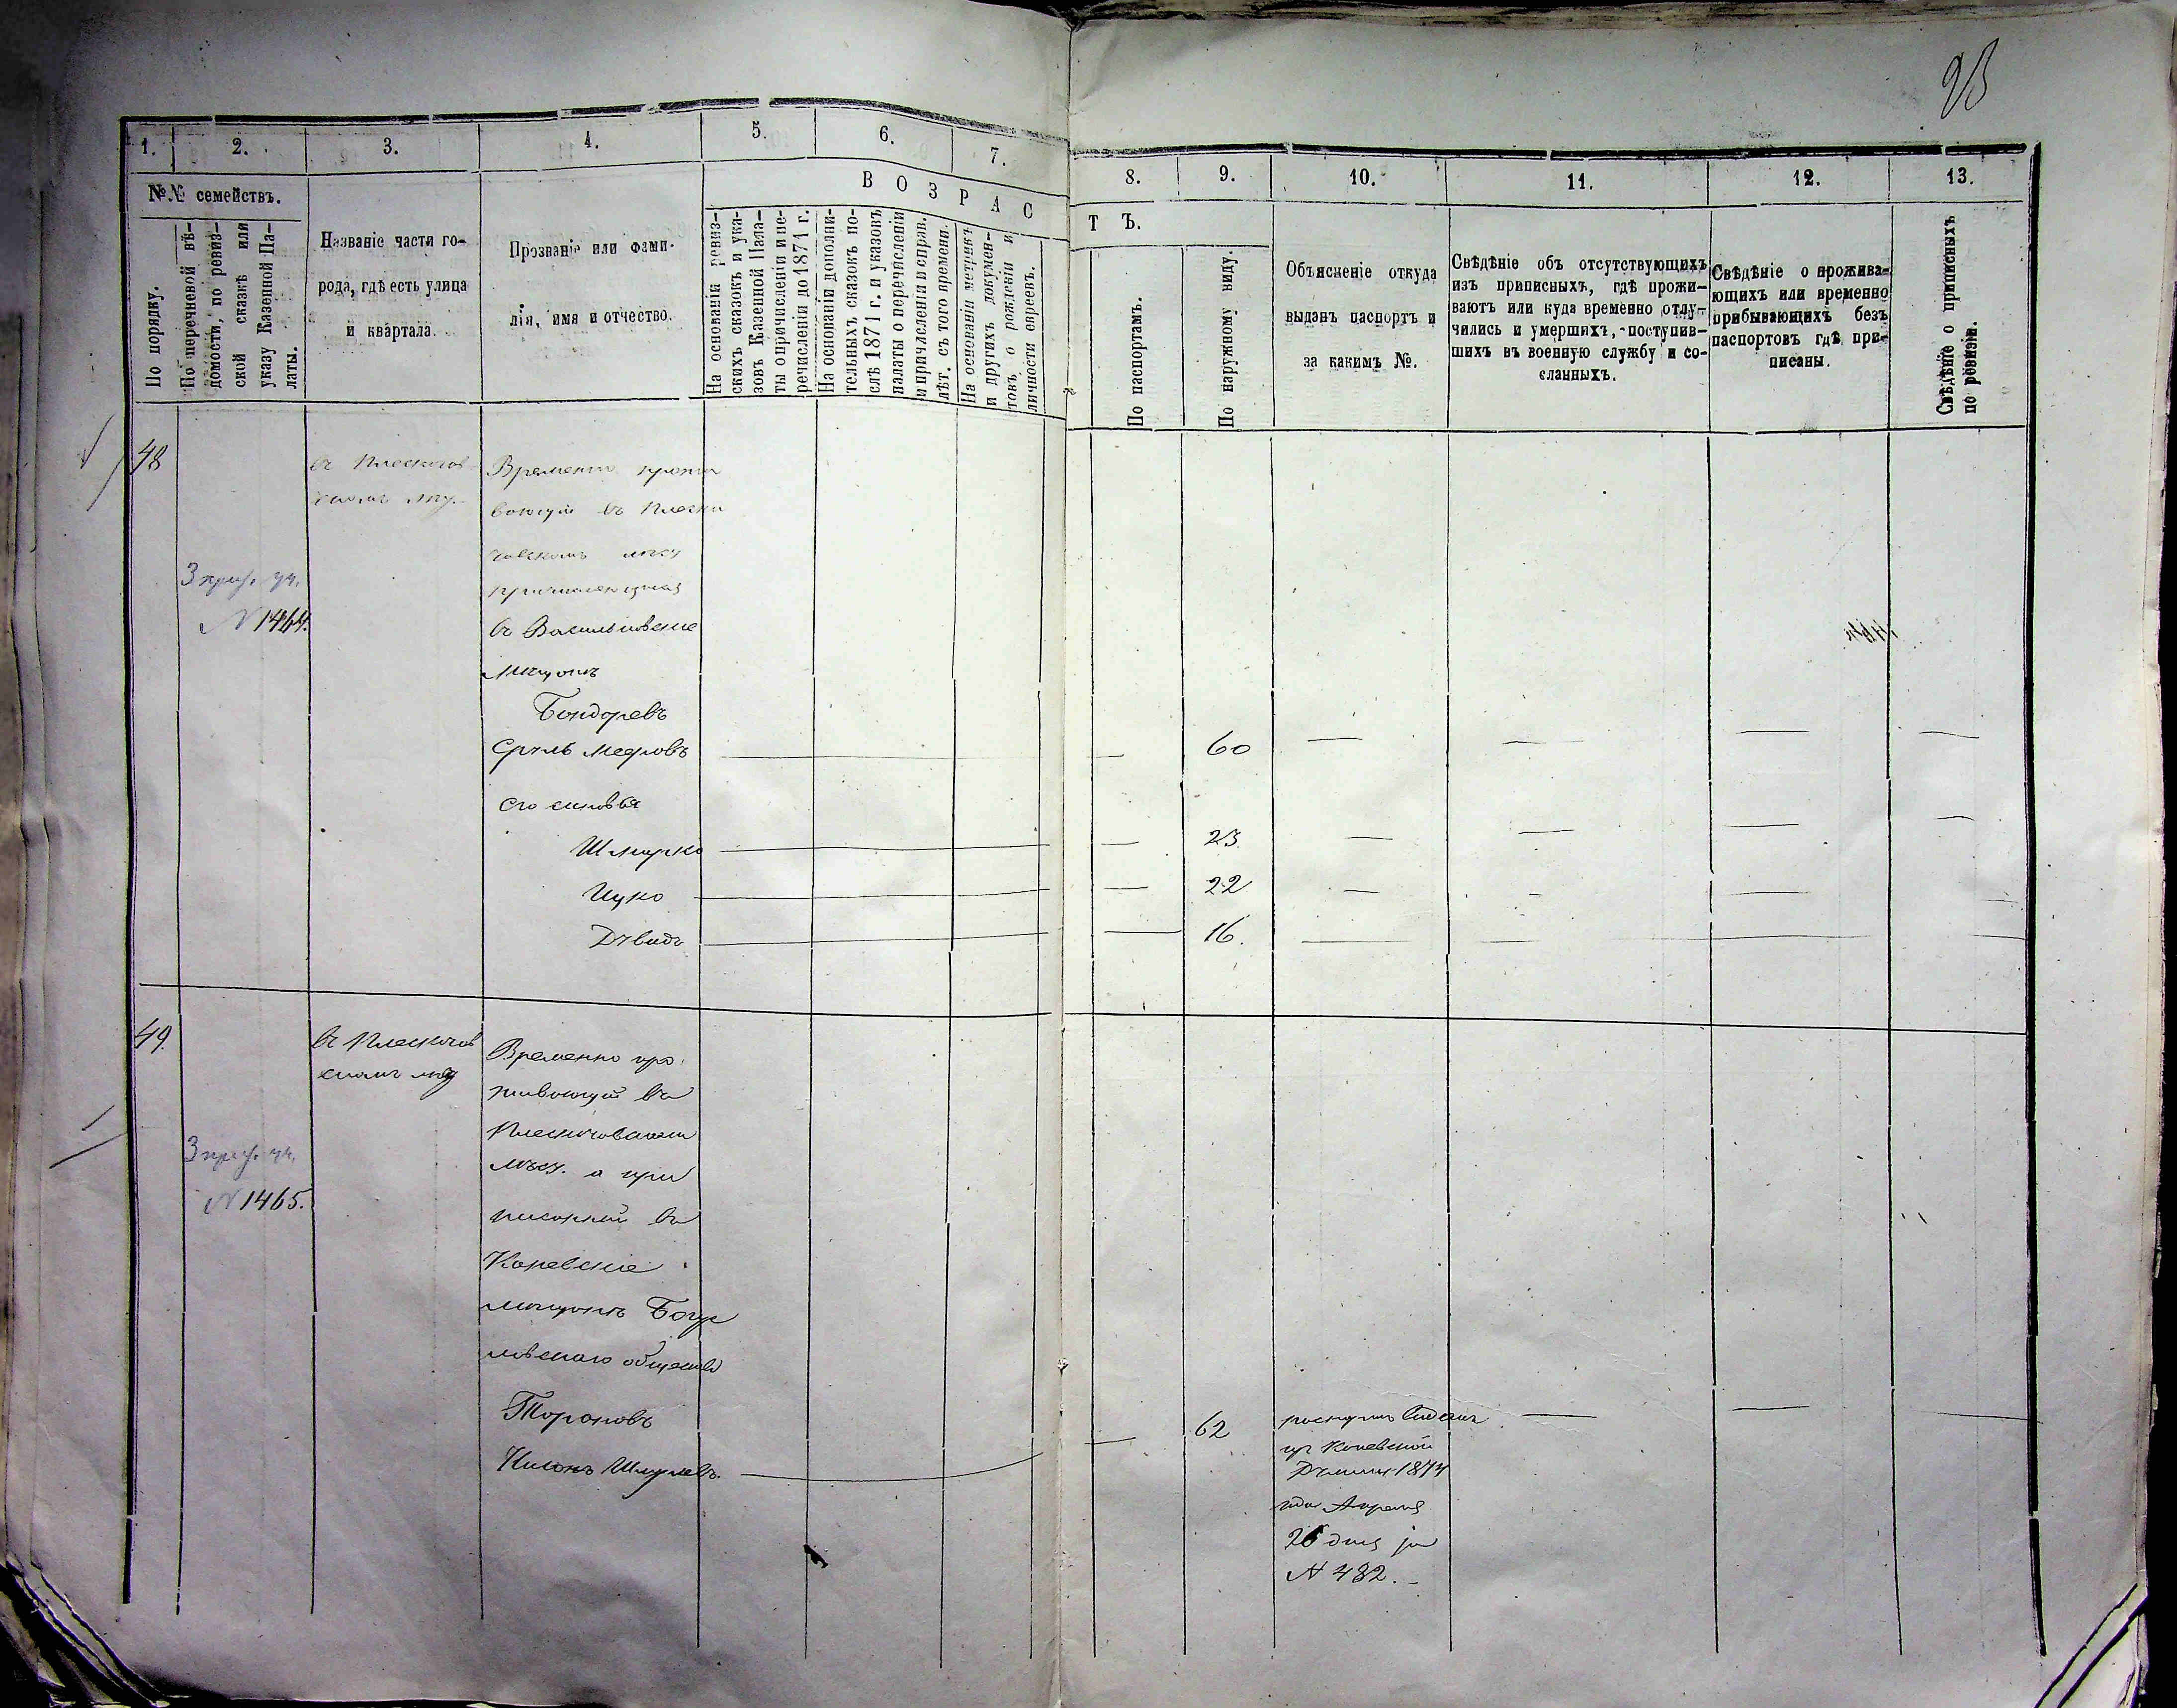 93
1. 2. 3. 4. 5. 6. 7. 8. 9. 10. 11. 12. 13.
№№ семействъ.
По порядку.
По перечневой вѣ-
домости, по ревиз-
ской сказкѣ или
указу Казенной Па-
латы.
Названіе части го-
рода, гдѣ есть улица
и квартала.
Прозваніе или фами-
лія, имя и отчество.
ВОЗРАСТЪ.
На основаніи ревиз-
скихъ сказокъ и ука-
зовъ Казенной Пала-
ты о причисленіи и пе-
речисленіи до 1871 г.
На основаніи дополни-
тельныхъ сказокъ по-
слѣ 1871 г. и указовъ
палаты о перечисленіи
и причисленіи и справ.
лѣт. съ того времени.
На основаніи метрикъ
и другихъ докумен-
товъ о рожденіи и
личности евреевъ.
По паспортамъ.
По наружному виду.
Объясненіе откуда
выданъ паспортъ и
за какимъ №.
Свѣдѣніе объ отсутствующихъ
изъ приписныхъ, гдѣ прожи-
ваютъ или куда временно отлу-
чились и умершихъ, поступив-
шихъ въ военную службу и со-
сланныхъ.
Свѣдѣніе о прожива-
ющихъ или временно
прибывающихъ безъ
паспортовъ гдѣ при-
писаны.
Свѣдѣніе о приписныхъ
по ревизіи.
48
3 приз. уч.
№ 1464.
въ Плескачев
Временно прожи
вающій въ Плеска
чевскомъ
въ Васильковскіе
мѣщане
Бондаревъ
Сруль Мееровъ 60
его сыновья
Шмерко 23.
Ицко 22.
Давидъ 16.
49.
3 приз. уч.
№ 1465.
въ Плескачев
скомъ
Временно про
живающій въ
Плескачевскомъ
мѣст. а при
писанный въ
Каневскіе
мѣщане Богу
славскаго общества
Тарановъ
Нисонъ Шмулевъ. 62
Каневской
Думы 1874
года Апреля
26 дня за
№ 432.